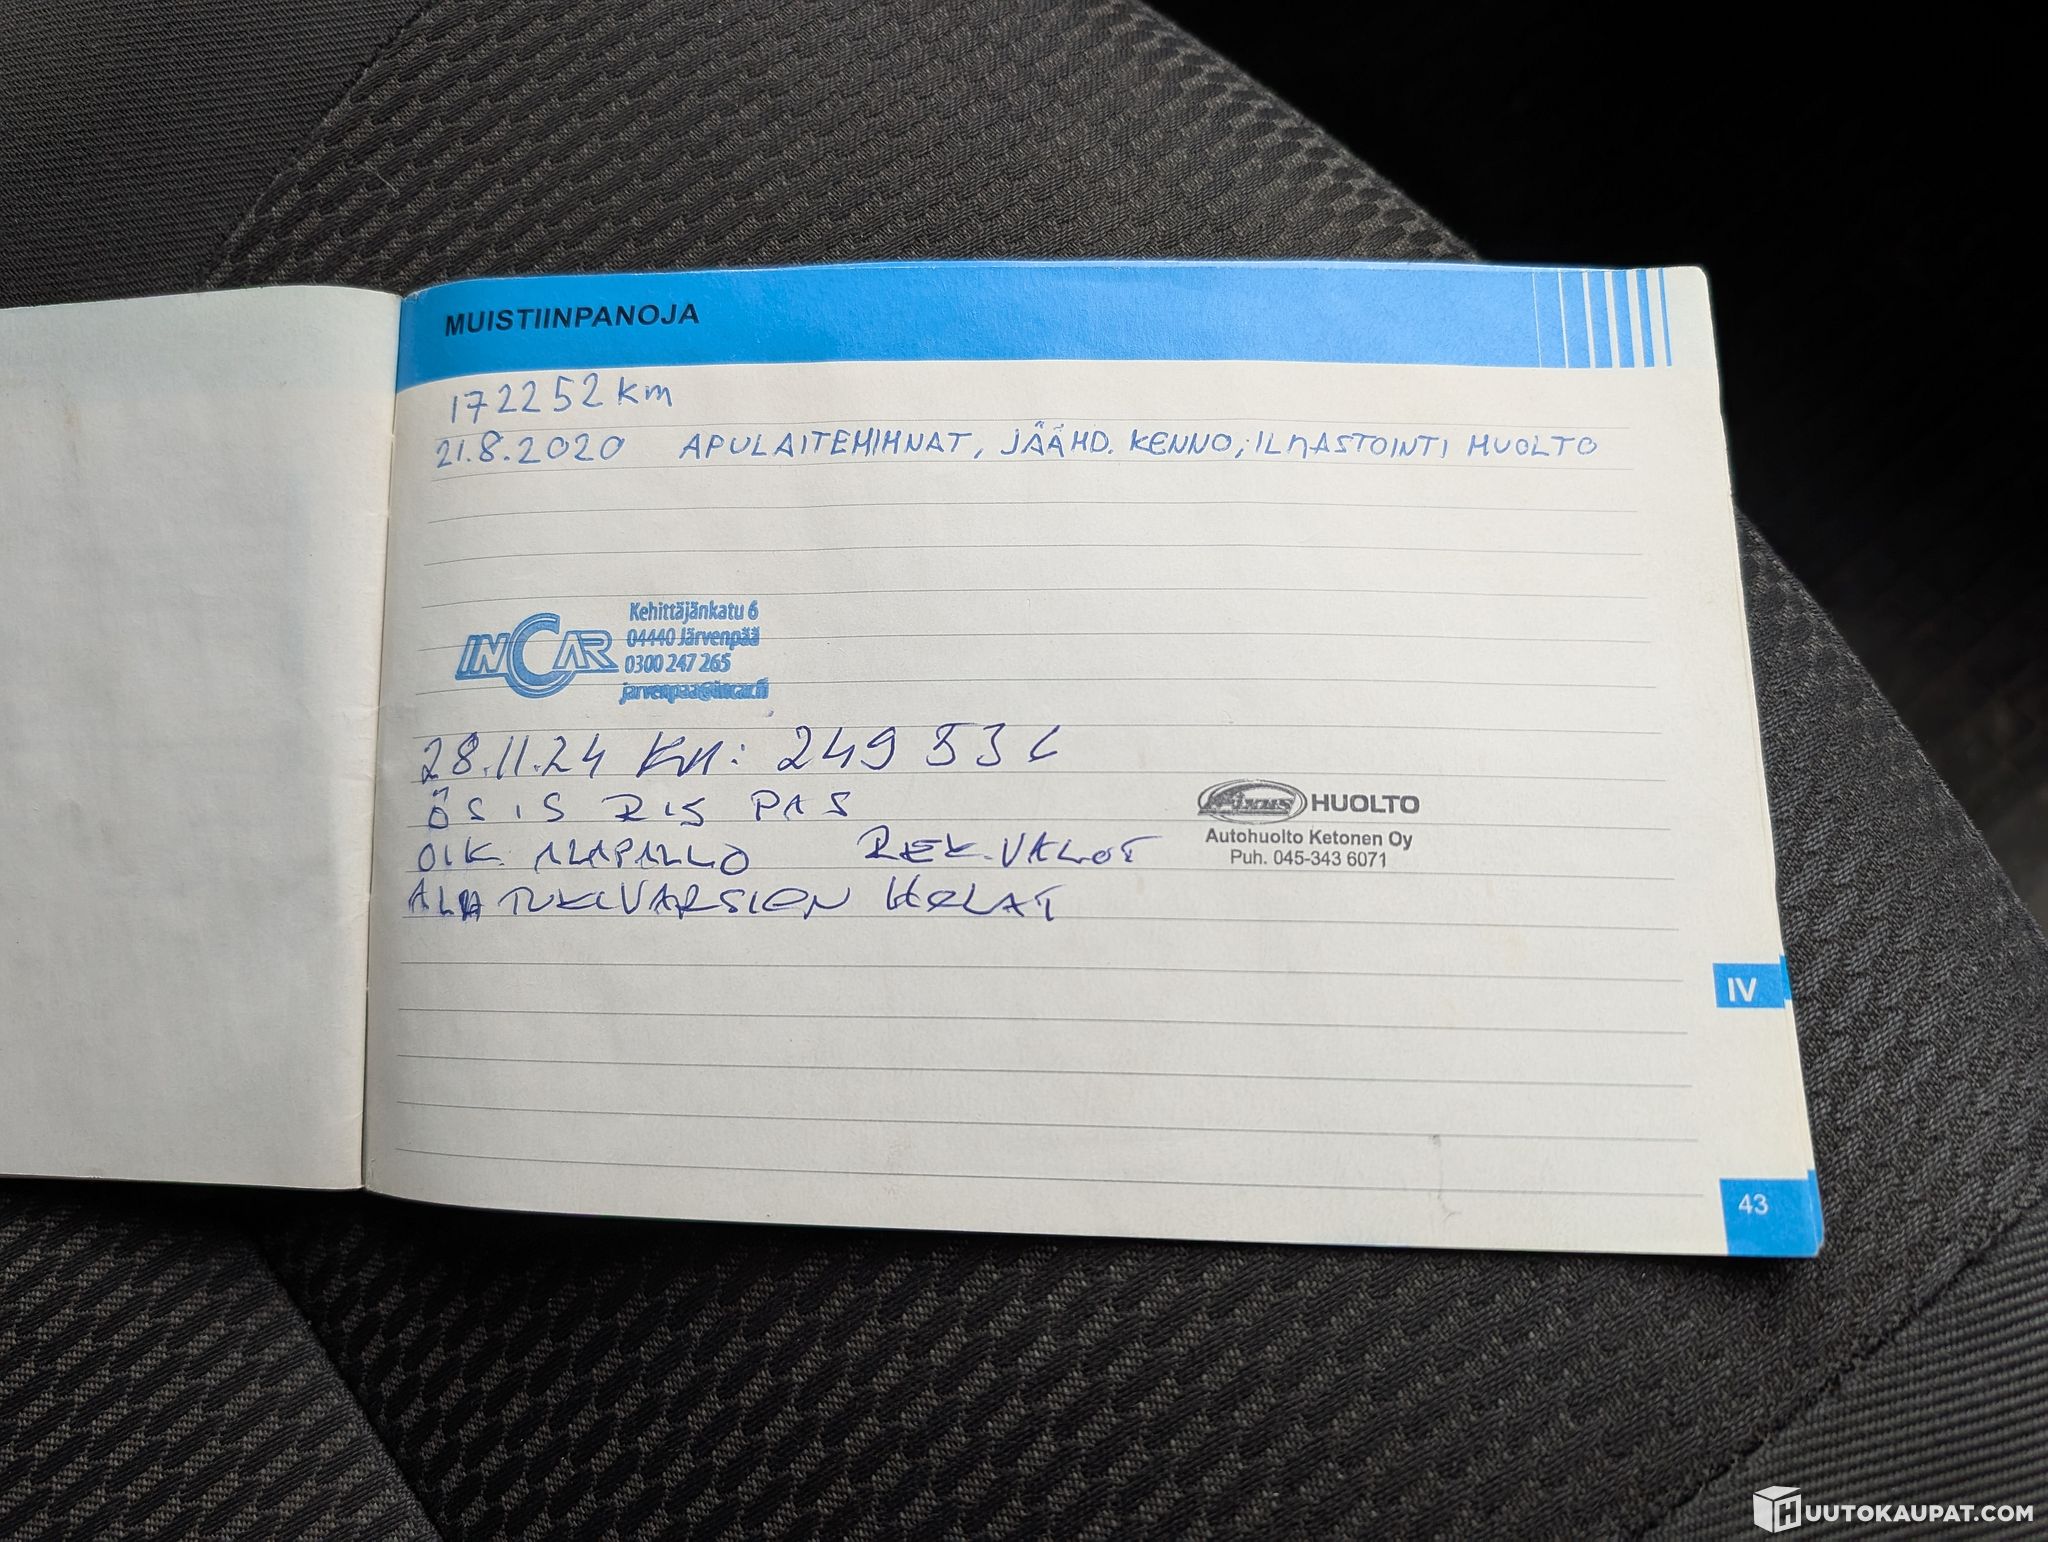 MUISTIINPANOJA
172252 km
21.8.2020 APULAITEHIHNAT, JÄÄHD. KENNO, ILMASTOINTI HUOLTO
INCAR
Kehittäjänkatu 6
04440 Järvenpää
0300 247 265
jarvenpaa@incar.fi
28.11.24 KM: 249 536
ÖS IS RIS PAS
OIK. ALAPALLO REK.VALOT
ALATUKIVARSIEN HOLAT
Fixus HUOLTO
Autohuolto Ketonen Oy
Puh. 045-343 6071
IV
43
HUUTOKAUPAT.COM